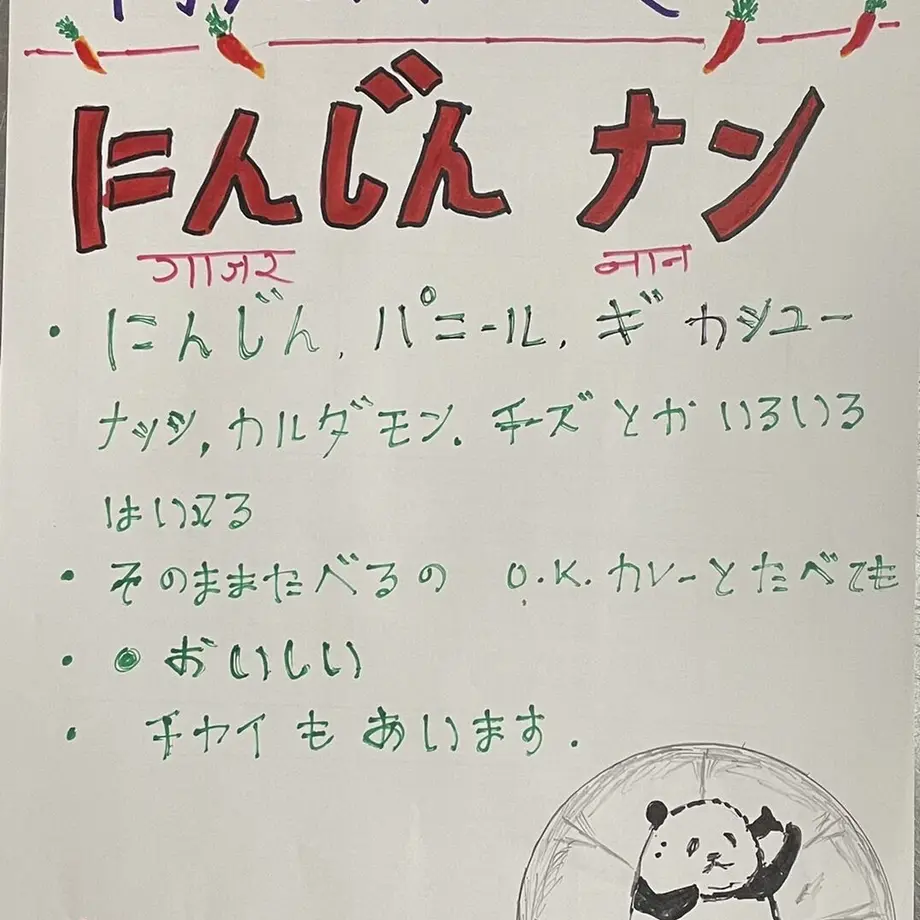 にんじん ナン
गाजर नान
・にんじん, パニール, ギ カシュー
ナッツ, カルダモン. チーズとか いろいろ
はいてる
・そのままたべるの O.K. カレーとたべても
・● おいしい
・チャイも あいます.